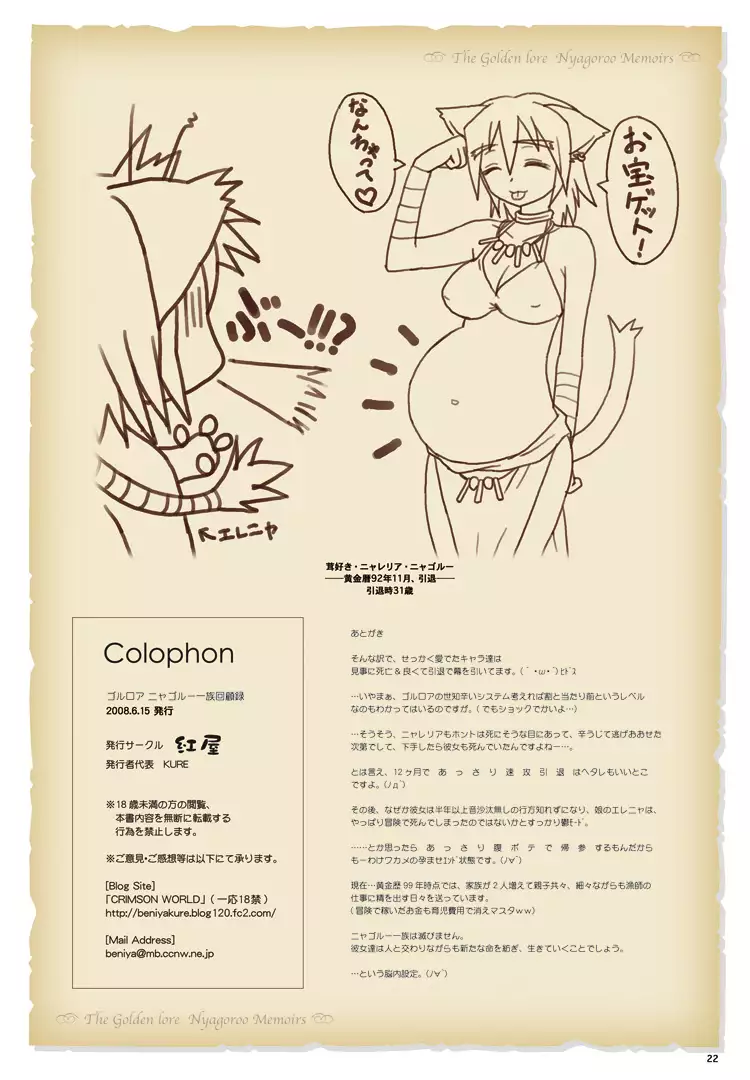 The Golden lore Nyagoroo Memoirs
お宝ゲット!
なんちゃって♡
ぶー!!?
↖エレニャ
茸好き・ニャレリア・ニャゴルー
――黄金暦92年11月、引退――
引退時31歳
Colophon
ゴルロア ニャゴルー一族回顧録
2008.6.15 発行
発行サークル 紅屋
発行者代表 KURE
※18歳未満の方の閲覧、
本書内容を無断に転載する
行為を禁止します。
※ご意見・ご感想等は以下にて承ります。
[Blog Site]
「CRIMSON WORLD」(一応18禁)
http://beniyakure.blog120.fc2.com/
[Mail Address]
beniya@mb.ccnw.ne.jp
あとがき
そんな訳で、せっかく愛でたキャラ達は
見事に死亡&良くて引退で幕を引いてます。(´・ω・`)ﾋﾄﾞｽ
…いやまぁ、ゴルロアの世知辛いシステム考えれば割と当たり前というレベル
なのもわかってはいるのですが。(でもショックでかいよ…)
…そうそう、ニャレリアもホントは死にそうな目にあって、辛うじて逃げおおせた
次第でして、下手したら彼女も死んでいたんですよねー…。
とは言え、12ヶ月で あっさり速攻引退 はヘタレもいいとこ
ですよ。(ﾉд`)
その後、なぜか彼女は半年以上音沙汰無しの行方知れずになり、娘のエレニャは、
やっぱり冒険で死んでしまったのではないかとすっかり鬱ﾓｰﾄﾞ。
……とか思ったら あっさり腹ボテで帰参 するもんだから
もーわけワカメの孕ませｴｯﾄﾞ状態です。(ﾉ∀`)
現在…黄金歴99年時点では、家族が2人増えて親子共々、細々ながらも漁師の
仕事に精を出す日々を送っています。
(冒険で稼いだお金も育児費用で消えマスタｗｗ)
ニャゴルー一族は滅びません。
彼女達は人と交わりながらも新たな命を紡ぎ、生きていくことでしょう。
…という脳内設定。(ﾉ∀`)
The Golden lore Nyagoroo Memoirs
22